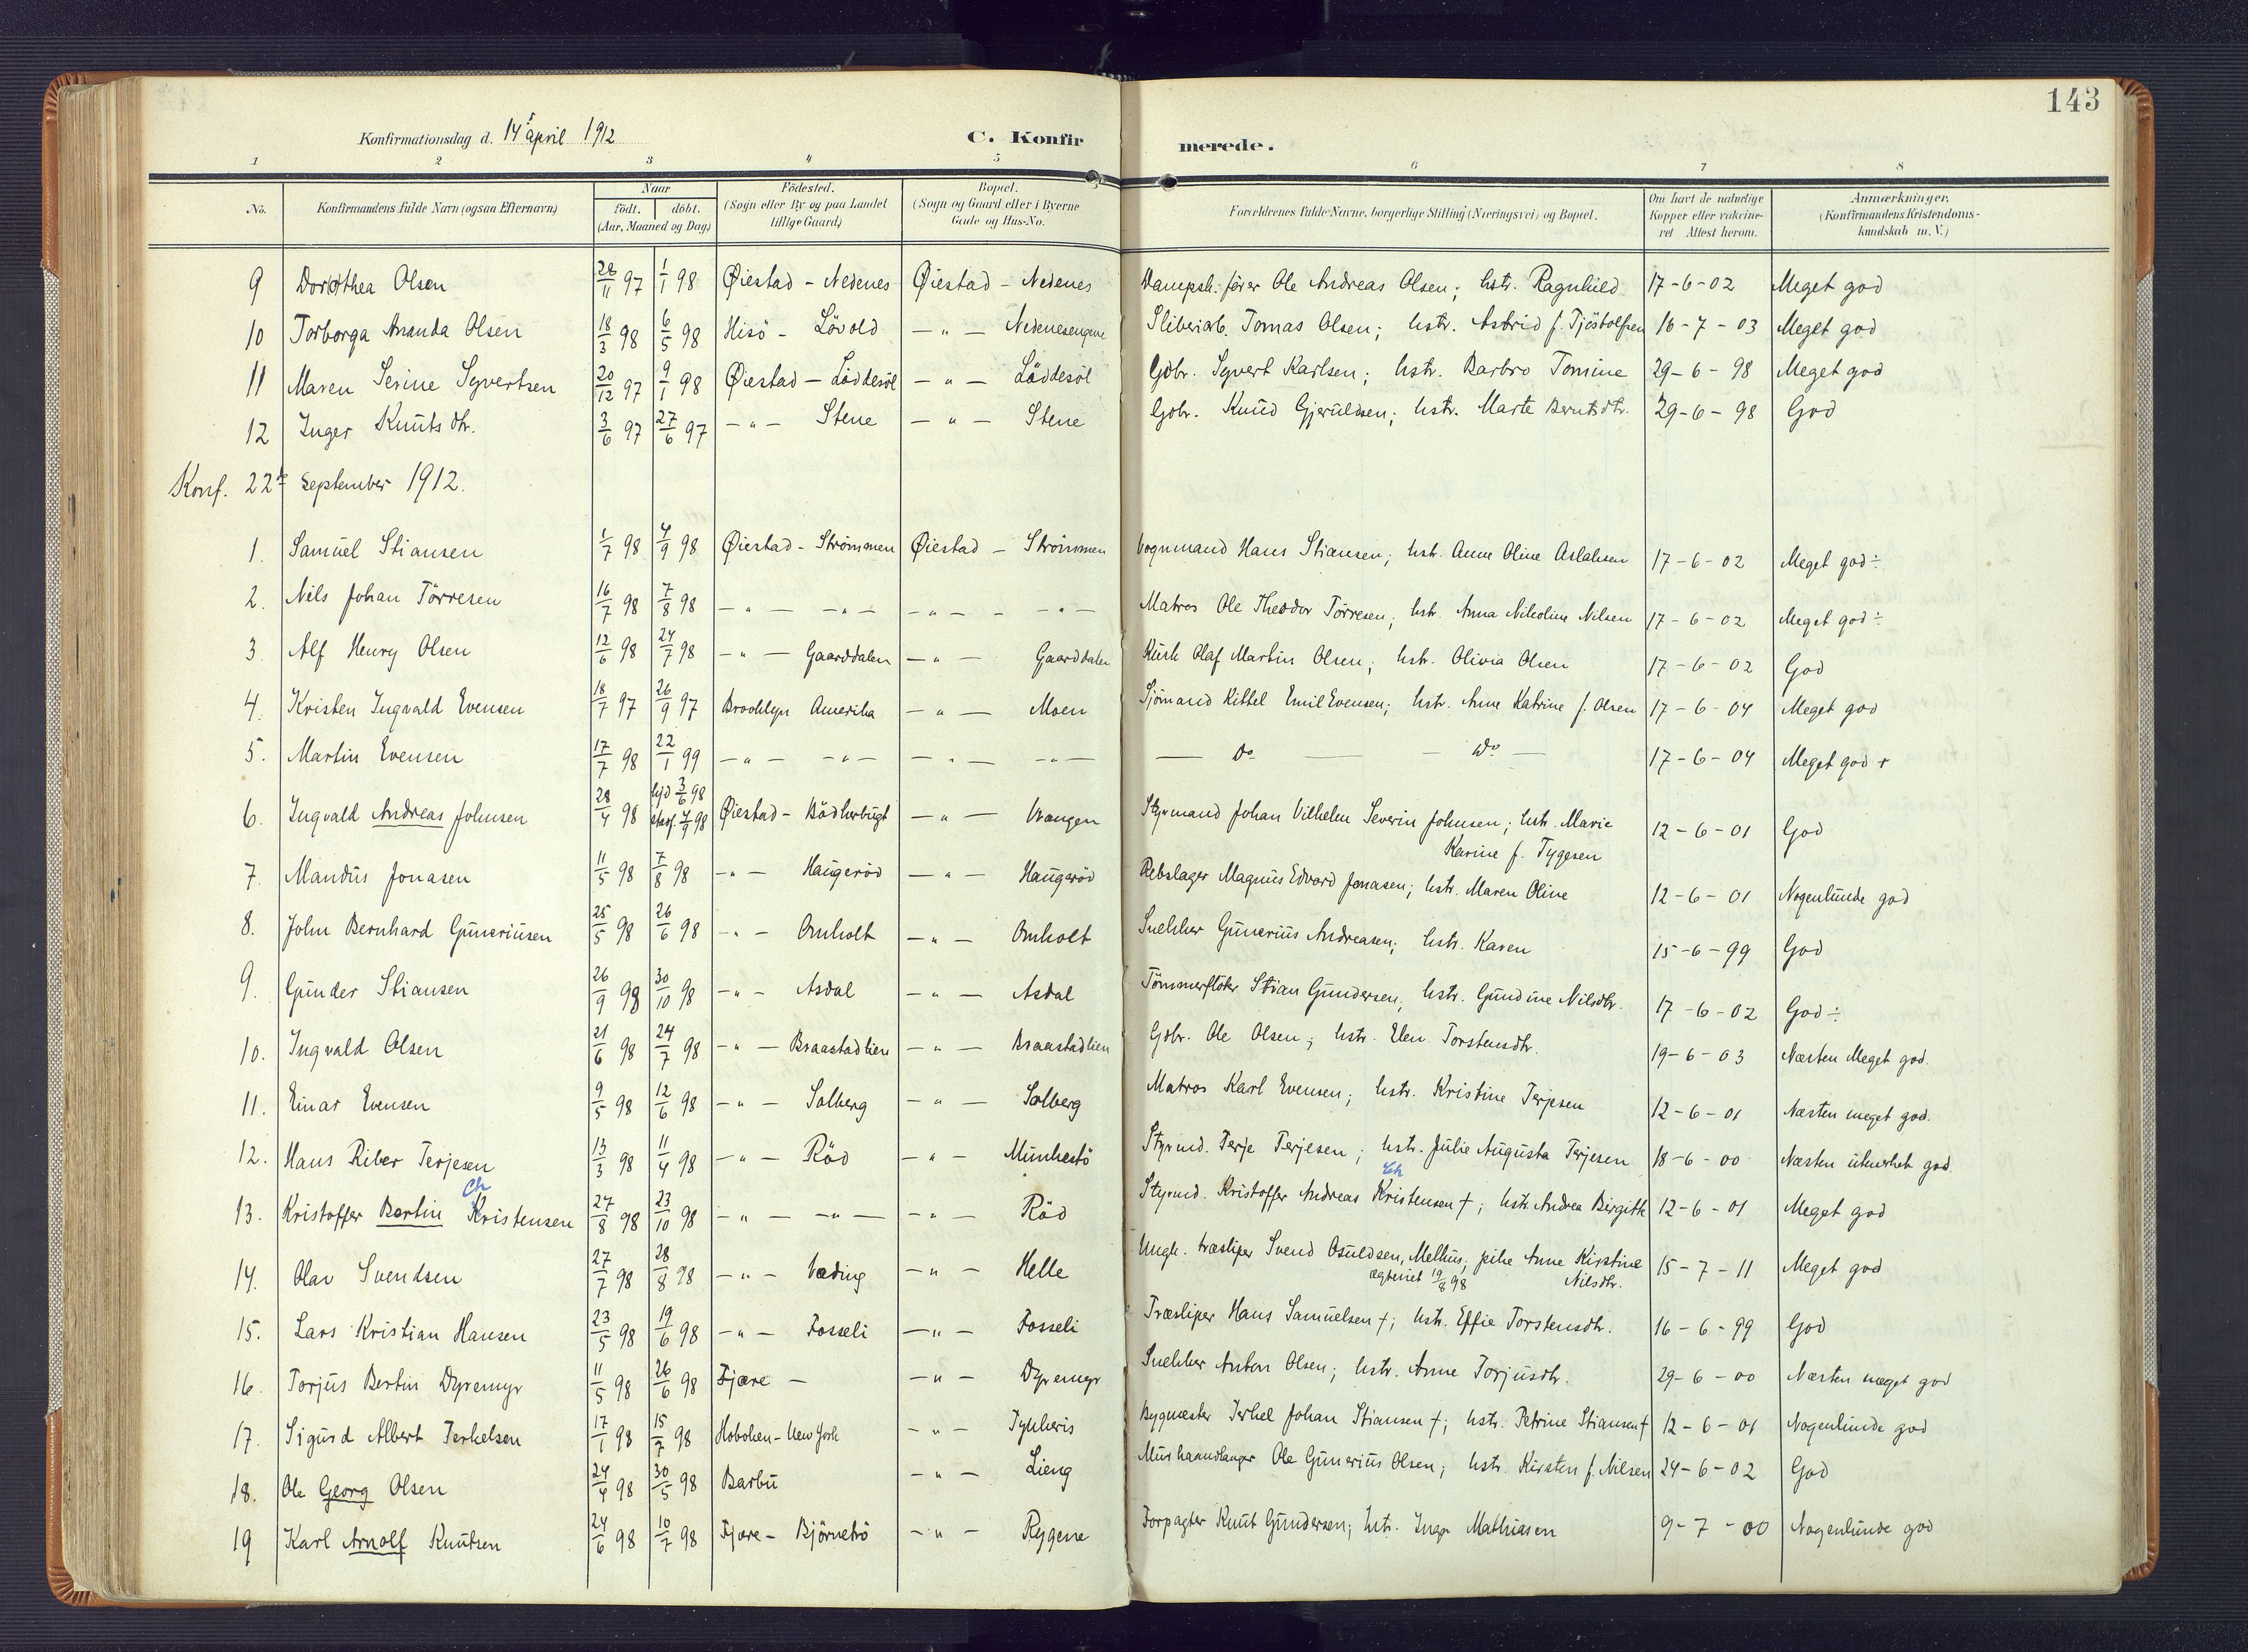 143
Konfirmationsdag d. 14 april 1912 C. Konfirmerede.
1 2 3 4 5 6 7 8
No. Konfirmandens fulde Navn (ogsaa Efternavn) Naar födt. döbt. (Aar, Maaned og Dag) Födested. (Sogn eller By og paa Landet tillige Gaard) Bopæl. (Sogn og Gaard eller i Byerne Gade og Hus-No. Forældrenes fulde Navne, borgerlige Stilling (Næringsvei) og Bopæl. Om havt de naturlige Kopper eller vakcineret Attest herom. Anmærkninger. (Konfirmandens Kristendomskundskab m. V.)
9 Dorothea Olsen 28/11 97 1/1 98 Øiestad - Nedenes Øiestad - Nedenes Dampsk. förer Ole Andreas Olsen; hstr. Ragnhild 17-6-02 Meget god
10 Torborga Amanda Olsen 18/3 98 6/5 98 Hisö - Lövold - " - Nedenesengene Sliberiarb. Tomas Olsen; hstr. Astrid f. Tjöstolfsen 16-7-03 Meget god
11 Maren Serine Syvertsen 20/12 97 9/1 98 Øiestad - Löddesöl - " - Löddesöl Gdbr. Syvert Karlsen; hstr. Barbro Tomine 29-6-98 Meget god
12 Inger Knutsdtr. 3/6 97 27/6 97 - " - Stene - " - Stene Gdbr. Knud Gjeruldsen; hstr. Marte Berntsdtr. 29-6-98 God
Konf. 22de september 1912.
1. Samuel Stiansen 1/7 98 4/9 98 Øiestad - Strömmen Øiestad - Strömmen Vognmand Hans Stiansen; hstr. Anne Oline Aslaksen 17-6-02 Meget god ÷
2. Nils Johan Törresen 16/7 98 7/8 98 - " - - " - - " - - " - Matros Ole Theodor Törresen; hstr. Anna Nikoline Nilsen 17-6-02 Meget god ÷
3. Alf Henry Olsen 12/6 98 24/7 98 - " - Gaarddalen - " - Gaarddalen Kusk Olaf Martin Olsen; hstr. Olivia Olsen 17-6-02 God
4. Kristen Ingvald Evensen 18/7 97 26/9 97 Brooklyn Amerika - " - Moen Sjömand Kittel Emil Evensen; hstr. Anne Katrine f. Olsen 17-6-04 Meget god
5. Martin Evensen 17/7 98 22/1 99 - " - - " - - " - - " - Do Do 17-6-04 Meget god +
6. Ingvald Andreas Johnsen 28/4 98 hjd 3/6 98 stadf. 4/9 98 Øiestad - Bödkerbugt - " - Vrangen Styrmand Johan Vilhelm Severin Johnsen; hstr. Marie 12-6-01 God
Karine f. Tygesen
7. Mandus Jonasen 11/5 98 7/8 98 - " - Haugeröd - " - Haugeröd Rebslager Magnus Edvard Jonasen; hstr. Maren Oline 12-6-01 Nogenlunde god
8. John Bernhard Guneriusen 25/5 98 26/6 98 - " - Omholt - " - Omholt Snekker Gunerius Andreasen; hstr. Karen 15-6-99 God
9. Gunder Stiansen 26/9 98 30/10 98 - " - Asdal - " - Asdal Tömmerflöter Stian Gundersen; hstr. Gundine Nilsdtr. 17-6-02 God ÷
10. Ingvald Olsen 21/6 98 24/7 98 - " - Braastadlien - " - Braastadlien Gdbr. Ole Olsen; hstr. Elen Torstensdtr. 19-6-03 Næsten Meget god.
11. Einar Evensen 9/5 98 12/6 98 - " - Solberg - " - Solberg Matros Karl Evensen; hstr. Kristine Terjesen 12-6-01 Næsten meget god.
12. Hans Riber Terjesen 13/3 98 11/4 98 - " - Röd - " - Munkestö Styrmd. Terje Terjesen; hstr. Julie Augusta Terjesen 18-6-00 Næsten utmerket god.
Ch Ch
13. Kristoffer Bertin Kristensen 27/8 98 23/10 98 - " - - " - - " - Röd Styrmd. Kristoffer Andreas Kristensen †; hstr. Andrea Birgitte 12-6-01 Meget god
14. Olav Svendsen 27/7 98 28/8 98 - " - Væding - " - Helle Ungk. træsliper Svend Osuldsen, Melhus; pike Anne Kirstine 15-7-11 Meget god
ægteviet 19/8 98 Nilsdtr.
15. Lars Kristian Hansen 23/5 98 19/6 98 - " - Fosseli - " - Fosseli Træsliper Hans Samuelsen †; hstr. Effie Torstensdtr. 16-6-99 God
16. Torjus Bertin Dyremyr 11/5 98 26/6 98 Fjære - - " - Dyremyr Snekker Anton Olsen; hstr. Anne Torjusdtr. 29-6-00 Næsten meget god
17. Sigurd Albert Terkelsen 17/1 98 15/7 98 Hoboken - New York - " - Bygmester Terkel Johan Stiansen †; hstr. Petrine Stiansen † 12-6-01 Nogenlunde god
18. Ole Georg Olsen 24/4 98 30/5 98 Barbu - " - Lieng Murhaandlanger Ole Gunerius Olsen; hstr. Kirsten f. Nilsen 24-6-02 God
19 Karl Arnolf Knutsen 24/6 98 10/7 98 Fjære - Björnetrö - " - Rygene Forpagter Knut Gundersen; hstr. Inger Mathiasen 9-7-00 Nogenlunde god